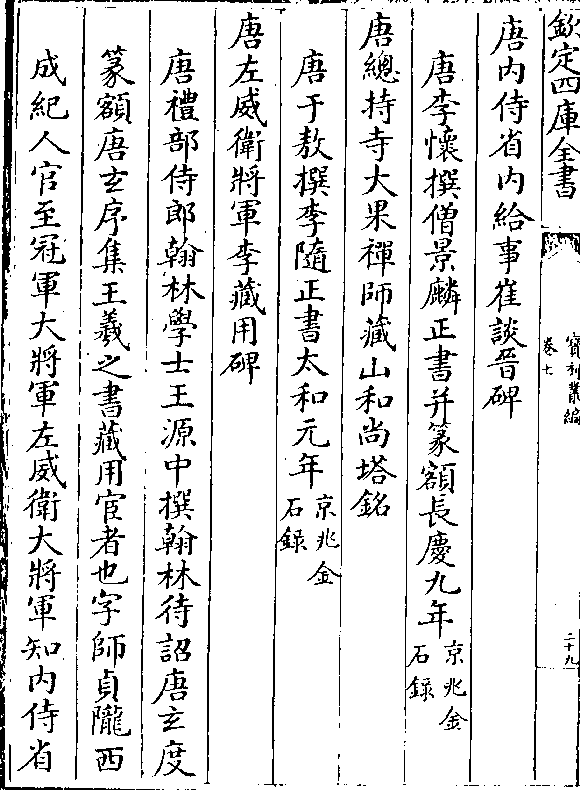 欽定四庫全書
寶刻叢編
卷七
二十九
唐内侍省内給事崔談晉碑
唐李懷撰僧景麟正書并篆額長慶九年京兆金石錄
唐總持寺大果禪師藏山和尚塔銘
唐于敖撰李隨正書太和元年京兆金石錄
唐左威衛將軍李藏用碑
唐禮部侍郎翰林學士王源中撰翰林待詔唐玄度
篆額唐玄序集王羲之書藏用宦者也字師貞隴西
成紀人官至冠軍大將軍左威衛大將軍知内侍省